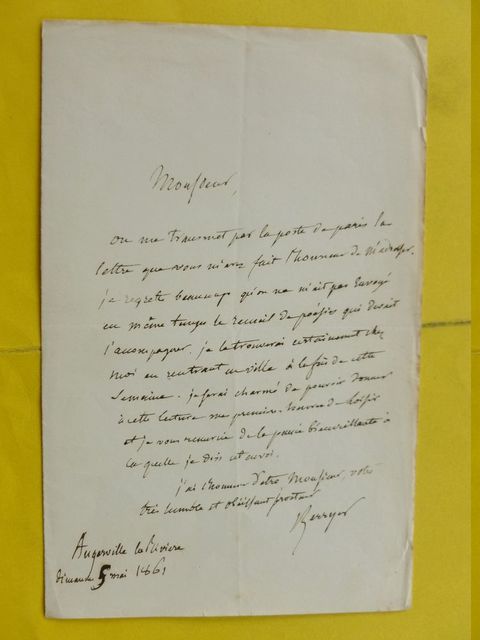 Monsieur,
on me transmet par la poste de paris la
lettre que vous m'avez fait l'honneur de m'adresser.
je regrette beaucoup qu'on ne m'ait pas Envoyé
en même temps le recueil de poésies qui devait
l'accompagner. je le trouverai certainement chez
moi en rentrant en ville à la fin de cette
Semaine. je serai charmé de pouvoir donner
à cette lecture ma première heure de loisir
et je vous remercie de la pensée bienveillante à
la quelle je dois cet envoi.
j'ai l'honneur d'etre Monsieur, votre
très humble et obéissant serviteur
Berryer
Augerville la Rivière
dimanche 5 mai 1861